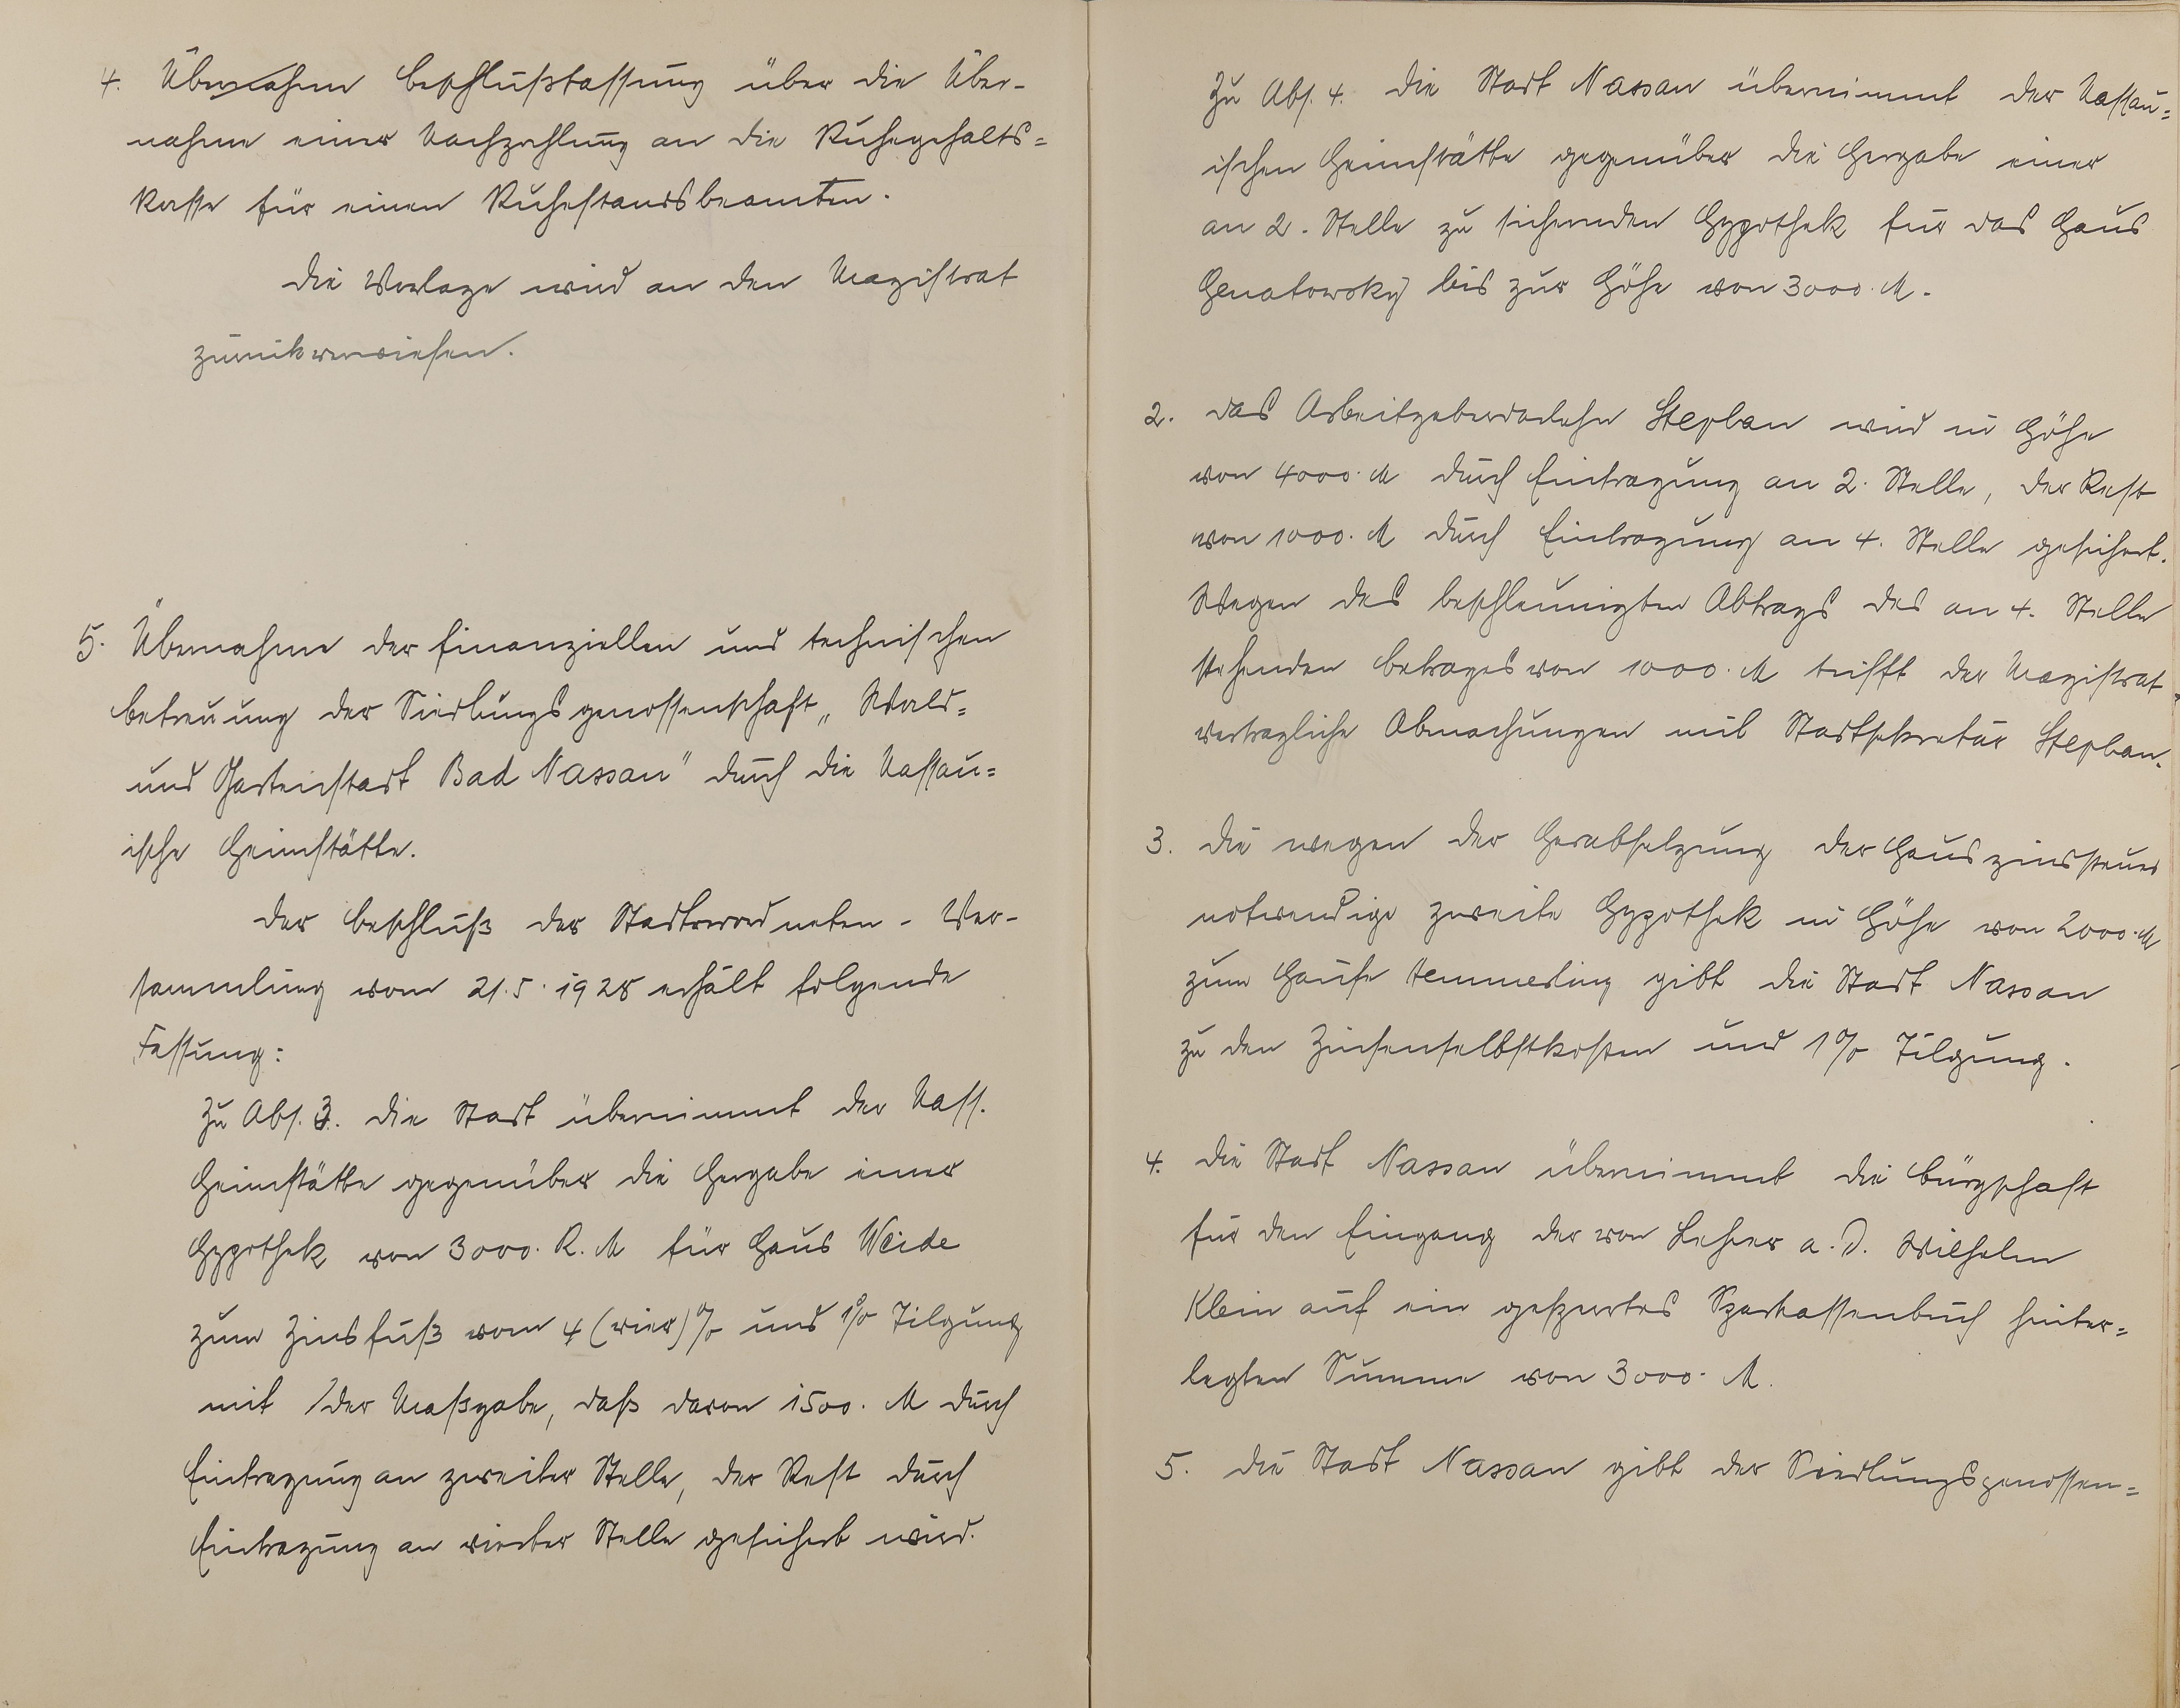 4. Übernahme Beschlußfassung über die Über-
nahme einer Nachzahlung an die Ruhegehalts=
kasse für einen Ruhestandsbeamten.
Die Vorlage wird an den Magistrat
zurückverwiesen.
5. Übernahme der finanziellen und technischen
Betreuung der Siedlungsgenossenschaft „Wald=
und Gartenstadt Bad Nassau" durch die Nassau=
ische Heimstätte.
Der Beschluß der Stadtverordneten-Ver-
sammlung vom 21.5.1928 erhält folgende
Fassung:
Zu Abs. 3. Die Stadt übernimmt der Nass.
Heimstätte gegenüber die Hergabe einer
Hypothek von 3000. R. M für Haus Weide
zum Zinsfuß vom 4 (vier) % und 1% Tilgung
mit der Maßgabe, daß davon 1500. M durch
Eintragung an zweiter Stelle, der Rest durch
Eintragung an vierter Stelle gesichert wird.
Zu Abs. 4. Die Stadt Nassau übernimmt der Nassau=
ischen Heimstätte gegenüber die Hergabe einer
an 2. Stelle zu sichernden Hypothek für das Haus
Genatowsky bis zur Höhe von 3000. M.
2. Das Arbeitgeberdarlehn Stephan wird in Höhe
von 4000. M durch Eintragung an 2. Stelle, der Rest
von 1000. M durch Eintragung an 4. Stelle gesichert.
Wegen des beschleunigten Abtrags des an 4. Stelle
stehenden Betrages von 1000. M trifft der Magistrat
vertragliche Abmachungen mit Stadtsekretär Stephan.
3. Die wegen der Herabsetzung der Hauszinssteuer
notwendige zweite Hypothek in Höhe von 2000. M
zum Hause Hemmerling gibt die Stadt Nassau
zu den Zinsenselbstkosten und 1% Tilgung.
4. Die Stadt Nassau übernimmt die Bürgschaft
für den Eingang der von Lehrer a. D. Wilhelm
Klein auf ein gesperrtes Sparkassenbuch hinter=
legten Summe von 3000. M.
5. Die Stadt Nassau gibt der Siedlungsgenossen=